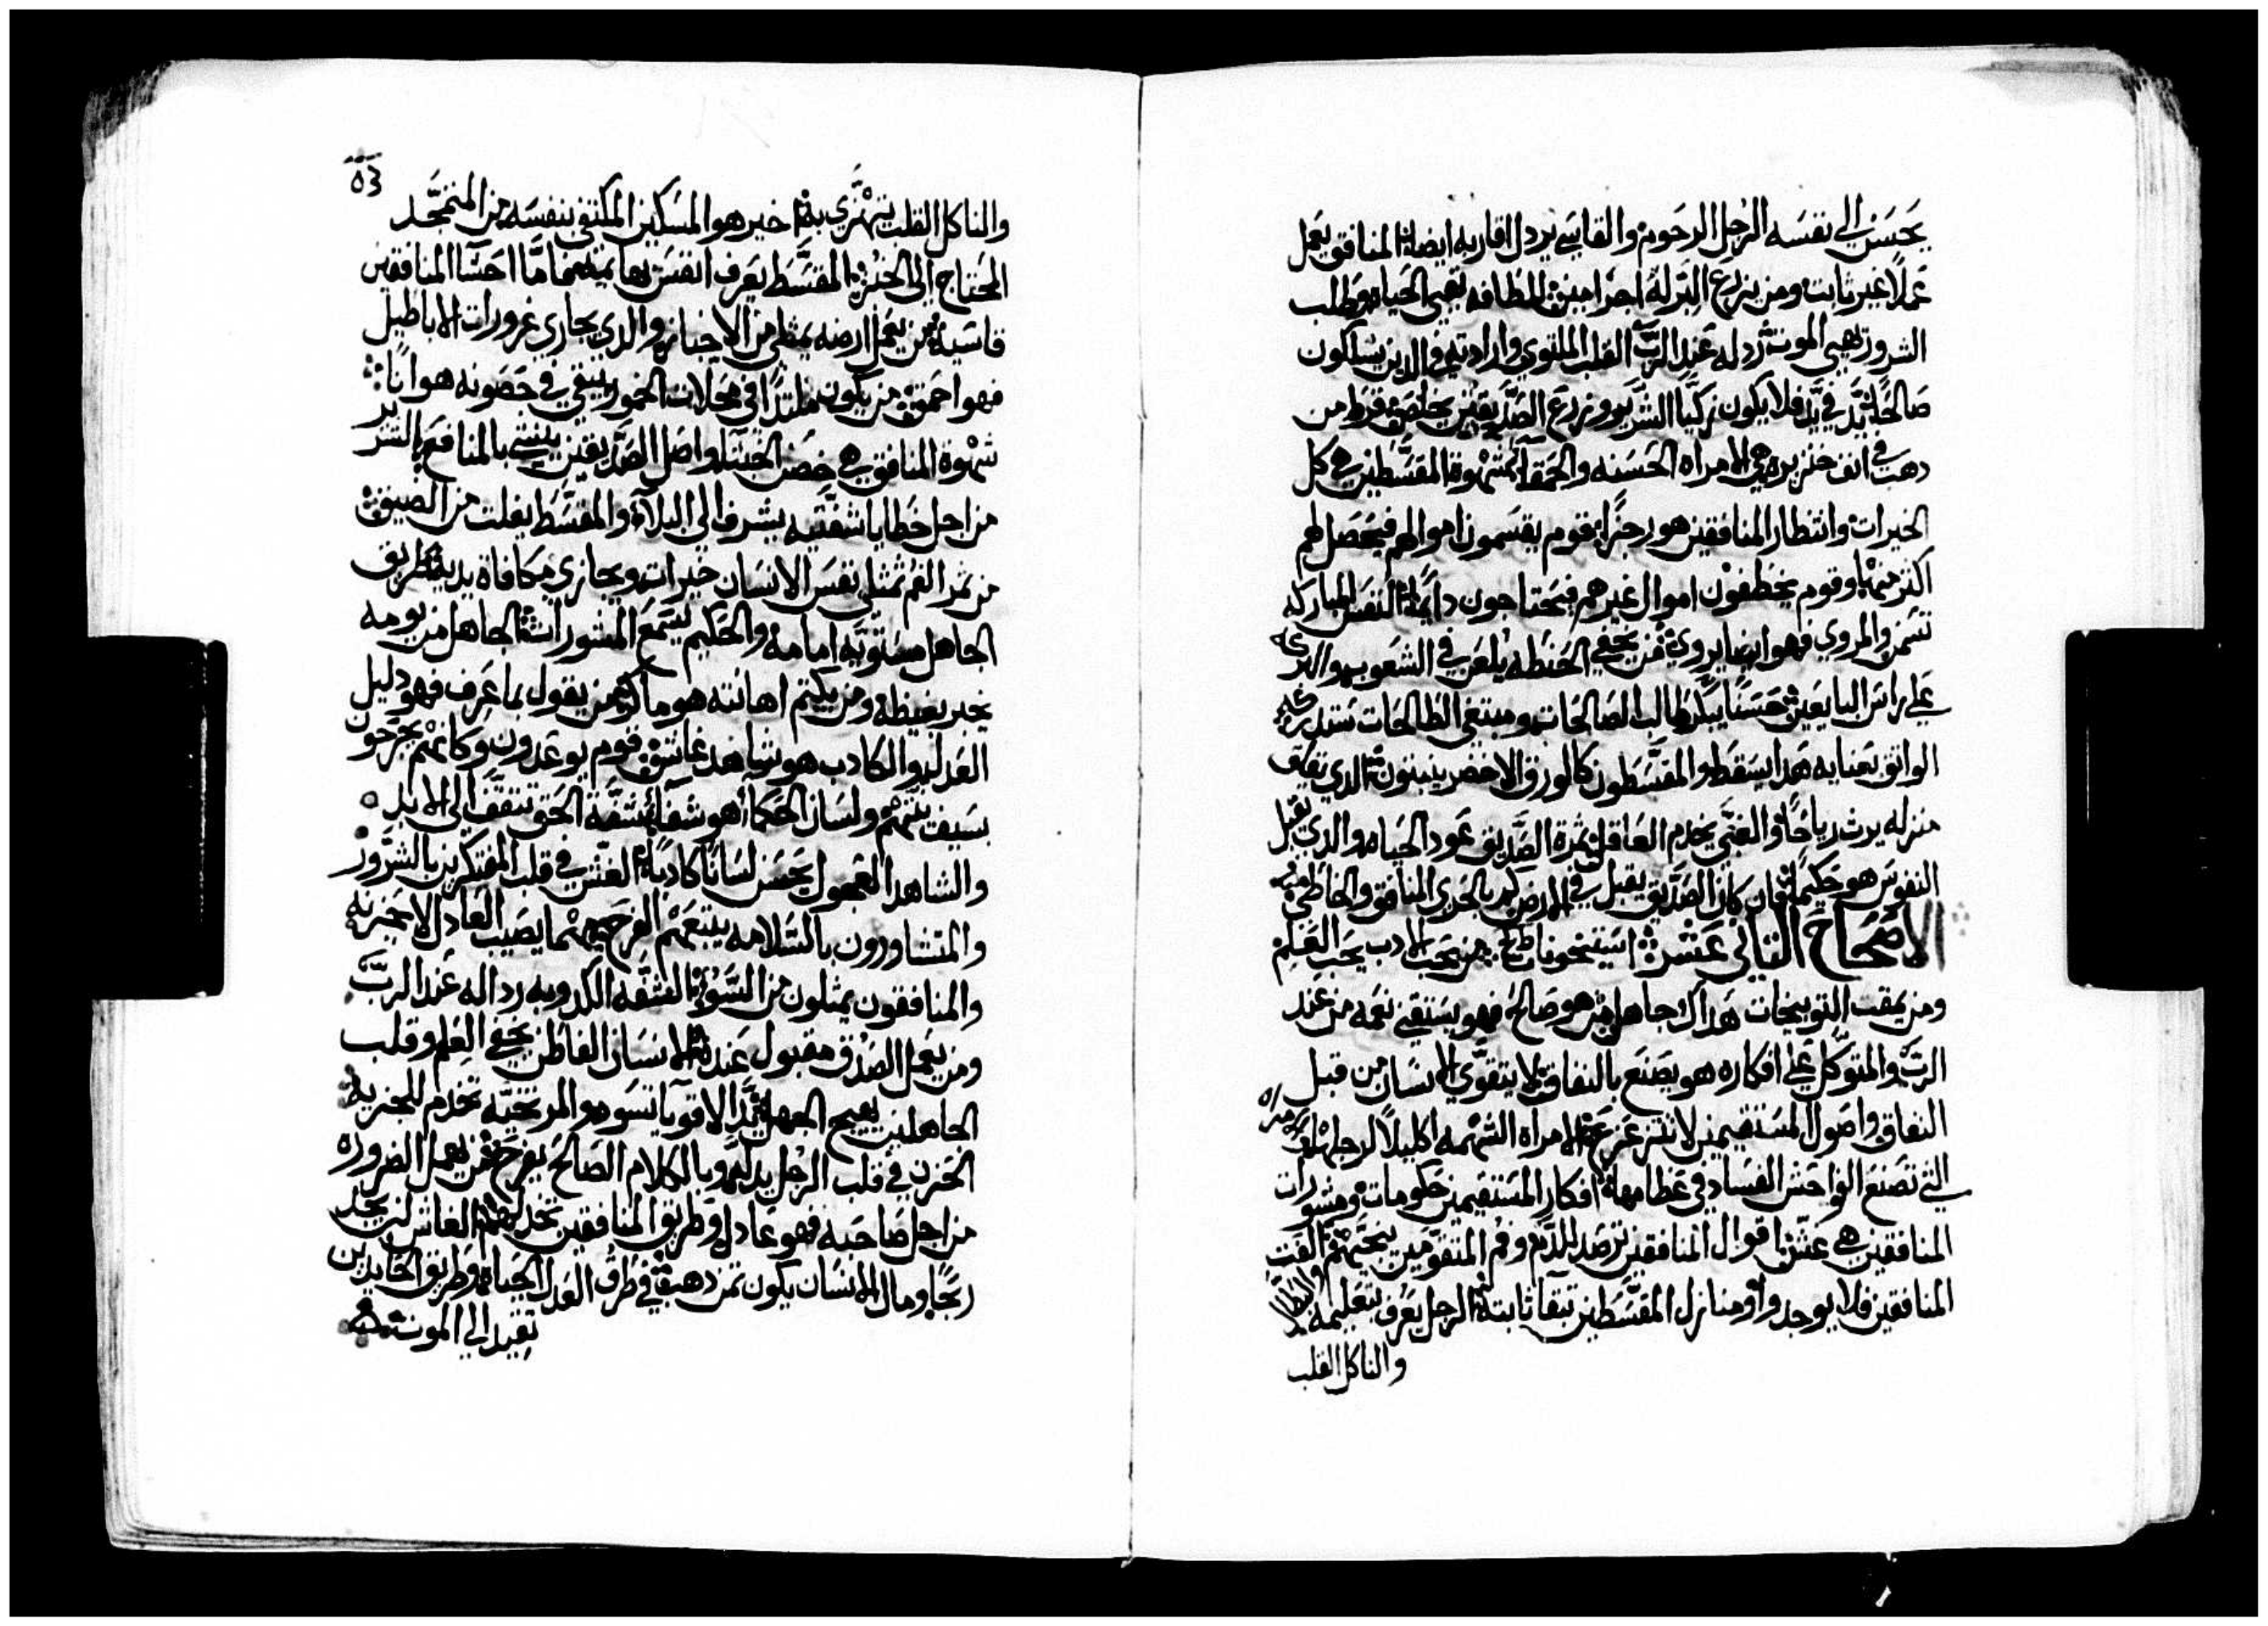 يحسن الى نفسه الرجل الرحوم والقاسي يردل اقاربه ايضا المنافق يعمل
عملاً غير ثابت ومن يزرع البر له اجرا مبين اللطافه تهيي الحياه وطلب
الشرور تهيي الموت ردله عند الرب القلب الملتوي وارادته في الدين يسلكون
صالحًا يد في يد فلا يكون زكيًا الشرير وزرع الصديقين يخلص قرط من
دهب في انف خنزيره هي الامراه الحسنه والحمقا شهوة المقسطين هي كل
الخيرات وانتظار المنافقين هو رجزًا قوم يقسمون اموالهم فيحصل لهم
اكثر منها وقوم يخطفون اموال غيرهم فيحتاجون دايمًا النفس المباركه
تسمن والمروي فهو ايضا يروي من يخفي الحنطه يلعن في الشعوب والبركه
على راس البايعين حسنًا يبكر طالب الصالحات ومبتغي الطالحات تستدركه
الواثق بغنايه هدا يسقط والمقسطون كالورق الاخضر ينبتون الدي يقلق
منزله يرث رياحًا والغبي يخدم العاقل ثمرة الصديق عود الحياه والدي يقبل
النفوس هو حكيمًا فان كان الصديق يقبل في الارض كم بالحري المنافق والخاطي
الاصحاح الثاني عشر من يحب الادب يحب العلم
ومن يمقت التوبيخات هداك جاهل من هو صالح فهو يستقي نعمه من عند
الرب والمتوكل على افكاره هو يصنع بالنفاق لا يتقوى الانسان من قبل
النفاق واصول المستقيمين لا تتزعزع الامراه الشهمه اكليلاً لرجلها
التي تصنع الواحش الفساد في عظامها افكار المستقيمين حكومات ومشورات
المنافقين هي غش اقوال المنافقين ترصد للدم وفم المتقومين ينجيهم القت
المنافقين فلا يوجدوا ومنازل المقسطين تبقا ثابته الرجل يعرف بتعليمه
والناكل القلب
والناكل القلب يتهزى به خير هو المسكين المكتفي بنفسه من المتمجد
المحتاج الى الخبز المقسط يعرف انفس بهايمه اما احشا المنافقين
قاسيه من يعمل ارضه يمتلي من الاخباز والدي يجاري غرورات الاباطيل
فهو احمق من يكون ملتدًا في محلات الخمور يبقي في حصونه هوانًا
شهوة المنافق هي حصن الخبثا واصل الصديقين ينشي بالمنافع الشرير
من اجل خطايا شفتيه يشرف الى البلا والمقسط يفلت من الضيق
من ثمر الفم تمتلي نفس الانسان خيرات ويجازي مكافاة يديه طريق
الجاهل مستويه امامه والحكيم يستمع المشورات الجاهل من يومه
يخبر بغيظه ومن يكتم اهانته هو ماكر من يقول بما عرف فهو دليل
العدل والكادب هو شاهد غاشق قوم يوعدون وكانهم يجرحون
بسيف نيتهم ولسان الحكما هو شفا شفة الحق تتقف الى الابد
والشاهد العجول يحسن لسانًا كادبًا الغش في قلب المفتكرين بالشرور
والمتشاورون بالسلامه يتبعهم الفرح مهما يصيب العادل لا يحزنه
والمنافقون يمتلون من السو الشفه الكدوبه رداله عند الرب
ومن يعمل الصدق مقبول عنده الانسان الفاطن يخفي العلم وقلب
الجاهلين يهيج الجهل يد الاقويا تسود والمرتخيه تخدم للجزيه
الحزن في قلب الرجل يدله وبالكلام الصالح يفرح من يهمل الضروره
من اجل صاحبه فهو عادل وطريق المنافقين تخدلهم الغاش لن يجد
ربحًا ومال الانسان يكون ثمن دهبه في طرق العدل الحياه وطريق الحايدين
تقيد الى الموت